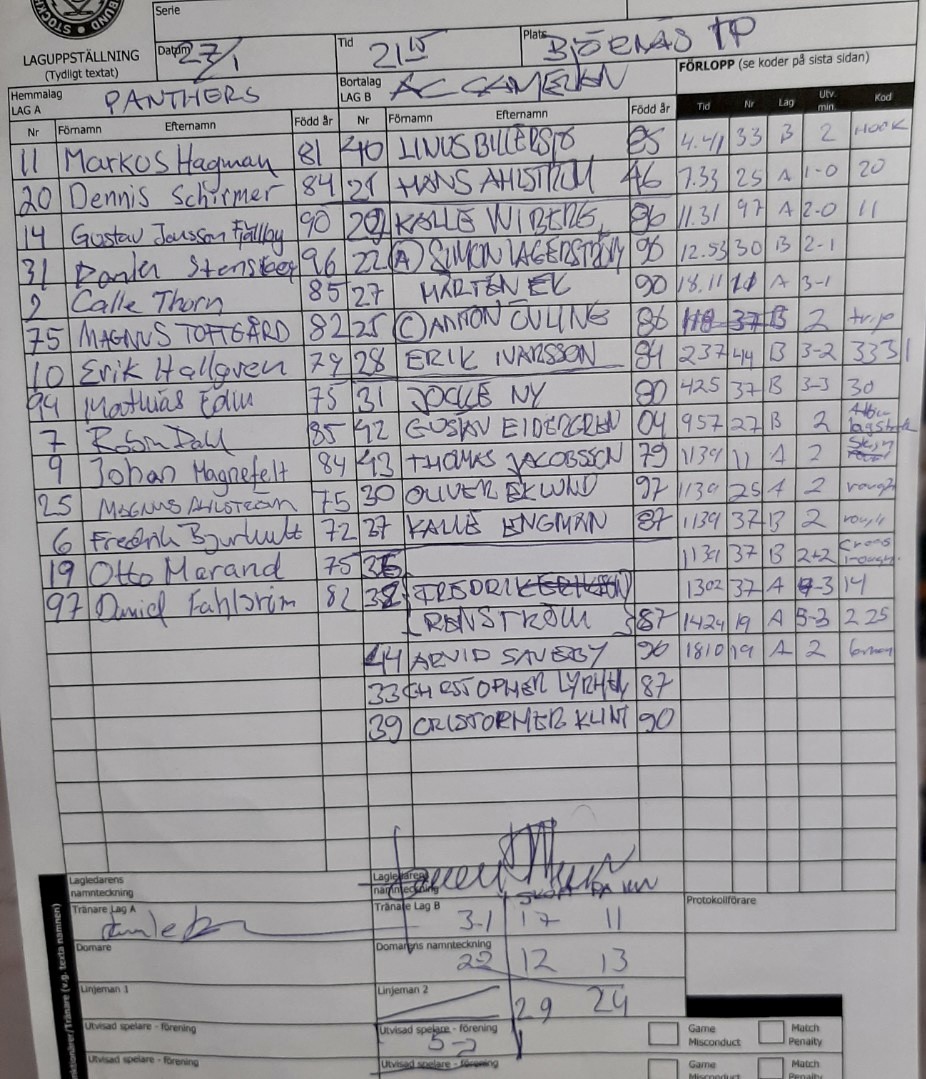 Serie
LAGUPPSTÄLLNING
(Tydligt textat)
Datum 27/1
Tid 21 15
Plats BJÖRNÄS IP
Hemmalag LAG A PANTHERS
Bortalag LAG B AC CAMELEN
FÖRLOPP (se koder på sista sidan)
Nr Förnamn Efternamn Född år Nr Förnamn Efternamn Född år Tid Nr Lag Utv. min. Kod
11 Markus Hagman 81 40 LINUS BILLERSTÖ 85 4.41 33 B 2 HOOK
20 Dennis Schirmer 84 21 HANS AHLSTRÖM 46 7.33 25 A 1-0 20
14 Gustav Jonsson Fjällby 90 29 KALLE WIBERG 86 11.31 97 A 2-0 11
31 Stensker 96 22 (A) SIMON LAGERSTRÖM 96 12.53 30 B 2-1
2 Calle Thorn 85 27 MÅRTEN EK 90 18.11 11 A 3-1
75 MAGNUS TOFTGÅRD 82 25 (C) ANTON 86 118 37 B 2 trip
10 Erik Hallgren 79 28 ERIK IVARSSON 84 237 44 B 3-2 3331
94 Mathias Edin 75 31 JOCKE NY 80 425 37 B 3-3 30
7 Robin Dall 85 42 GUSTAV EIDERGREN 04 957 27 B 2 lagstraff
9 Johan Magnefelt 84 43 THOMAS JACOBSSON 79 1139 11 A 2
25 MAGNUS AHLSTRÖM 75 30 OLIVER EKLUND 97 1139 25 A 2 rough
6 Fredrik Bjurhult 72 37 KALLE ENGMAN 87 1139 37 B 2 rough
19 Otto Marand 75 36 1139 37 B 2+2 Cross rough.
97 Daniel Fahlström 82 38 FREDRIK ERIKSSON 1302 37 A 4-3 14
RENSTRÖM 87 1424 19 A 5-3 2 25
44 ARVID SAVEBY 90 1810 19 A 2
33 CHRSTOPHER LYRHEM 87
39 CRISTORMER KLINT 90
Lagledarens namnteckning
Lagledarens namnteckning
SKOTT PA KN
Protokollförare
Tränare Lag A
Tränare Lag B 3-1 17 11
Domare
Domarens namnteckning 22 12 13
Linjeman 1
Linjeman 2 29 24
Utvisad spelare - förening
Utvisad spelare - förening 5-3
Game Misconduct
Match Penalty
Utvisad spelare - förening
Utvisad spelare - förening
Game Misconduct
Match Penalty